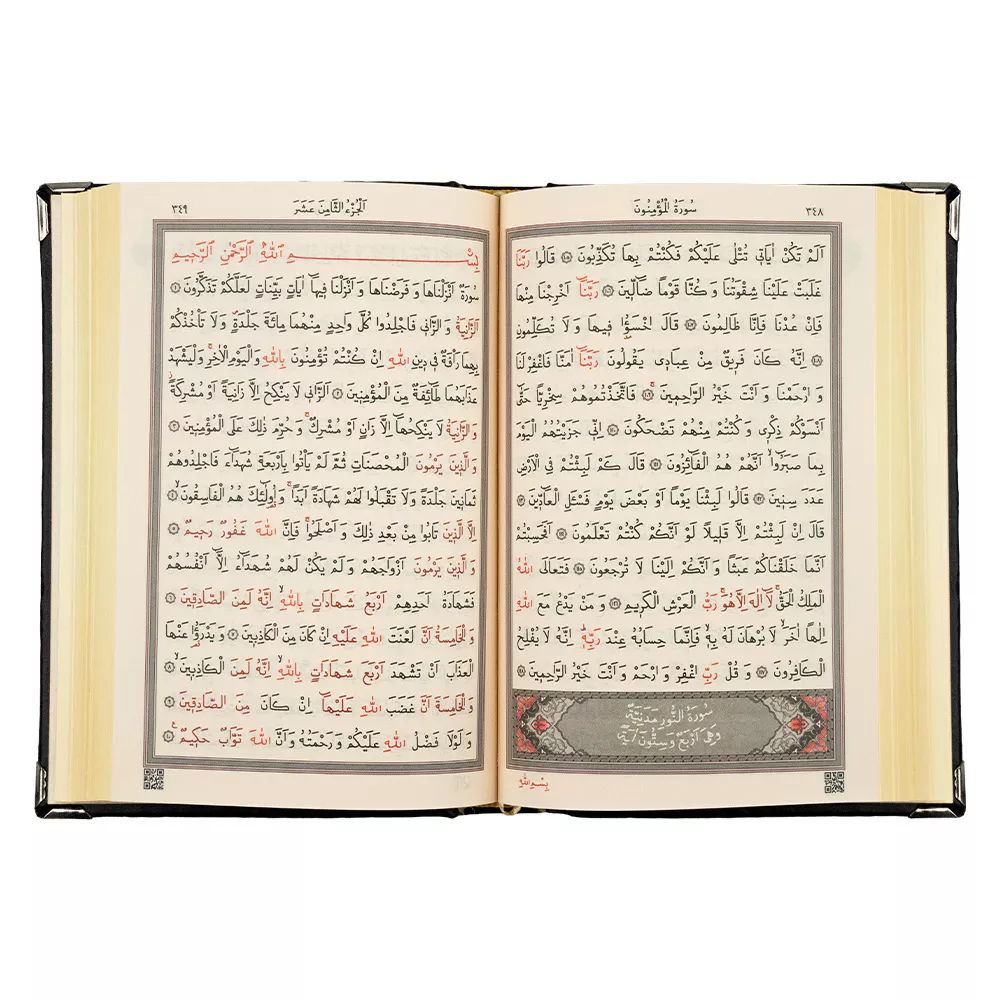 ٣٤٨
سُورَةُ الْمُؤْمِنُونَ
اَلَمْ تَكُنْ اٰيَاتٖى تُتْلٰى عَلَيْكُمْ فَكُنْتُمْ بِهَا تُكَذِّبُونَ ﴿١٠٥﴾ قَالُوا رَبَّنَا
غَلَبَتْ عَلَيْنَا شِقْوَتُنَا وَكُنَّا قَوْمًا ضَٓالّٖينَ ﴿١٠٦﴾ رَبَّنَٓا اَخْرِجْنَا مِنْهَا
فَاِنْ عُدْنَا فَاِنَّا ظَالِمُونَ ﴿١٠٧﴾ قَالَ اخْسَؤُ۫ا فٖيهَا وَلَا تُكَلِّمُونِ
﴿١٠٨﴾ اِنَّهُ كَانَ فَرٖيقٌ مِنْ عِبَادٖى يَقُولُونَ رَبَّنَٓا اٰمَنَّا فَاغْفِرْ لَنَا
وَارْحَمْنَا وَاَنْتَ خَيْرُ الرَّاحِمٖينَ ﴿١٠٩﴾ فَاتَّخَذْتُمُوهُمْ سِخْرِيًّا حَتّٰٓى
اَنْسَوْكُمْ ذِكْرٖى وَكُنْتُمْ مِنْهُمْ تَضْحَكُونَ ﴿١١٠﴾ اِنّٖى جَزَيْتُهُمُ الْيَوْمَ
بِمَا صَبَرُٓوا اَنَّهُمْ هُمُ الْفَٓائِزُونَ ﴿١١١﴾ قَالَ كَمْ لَبِثْتُمْ فِى الْاَرْضِ
عَدَدَ سِنٖينَ ﴿١١٢﴾ قَالُوا لَبِثْنَا يَوْمًا اَوْ بَعْضَ يَوْمٍ فَسْـَٔلِ الْعَٓادّٖينَ ﴿١١٣﴾
قَالَ اِنْ لَبِثْتُمْ اِلَّا قَلٖيلًا لَوْ اَنَّكُمْ كُنْتُمْ تَعْلَمُونَ ﴿١١٤﴾ اَفَحَسِبْتُمْ
اَنَّمَا خَلَقْنَاكُمْ عَبَثًا وَاَنَّكُمْ اِلَيْنَا لَا تُرْجَعُونَ ﴿١١٥﴾ فَتَعَالَى اللّٰهُ
الْمَلِكُ الْحَقُّ لَٓا اِلٰهَ اِلَّا هُوَ رَبُّ الْعَرْشِ الْكَرٖيمِ ﴿١١٦﴾ وَمَنْ يَدْعُ مَعَ اللّٰهِ
اِلٰهًا اٰخَرَ لَا بُرْهَانَ لَهُ بِهٖ فَاِنَّمَا حِسَابُهُ عِنْدَ رَبِّهٖ اِنَّهُ لَا يُفْلِحُ
الْكَافِرُونَ ﴿١١٧﴾ وَقُلْ رَبِّ اغْفِرْ وَارْحَمْ وَاَنْتَ خَيْرُ الرَّاحِمٖينَ ﴿١١٨﴾
سُورَةُ النُّورِ مَدَنِيَّةٌ
وَهِىَ اَرْبَعٌ وَسِتُّونَ اٰيَةً
بِسْمِ اللّٰهِ
اَلْجُزْءُ الثَّامِنَ عَشَرَ
٣٤٩
بِسْمِ اللّٰهِ الرَّحْمٰنِ الرَّحٖيمِ
سُورَةٌ اَنْزَلْنَاهَا وَفَرَضْنَاهَا وَاَنْزَلْنَا فٖيهَٓا اٰيَاتٍ بَيِّنَاتٍ لَعَلَّكُمْ تَذَكَّرُونَ ﴿١﴾
اَلزَّانِيَةُ وَالزَّانٖى فَاجْلِدُوا كُلَّ وَاحِدٍ مِنْهُمَا مِائَةَ جَلْدَةٍ وَلَا تَأْخُذْكُمْ
بِهِمَا رَأْفَةٌ فٖى دٖينِ اللّٰهِ اِنْ كُنْتُمْ تُؤْمِنُونَ بِاللّٰهِ وَالْيَوْمِ الْاٰخِرِ وَلْيَشْهَدْ
عَذَابَهُمَا طَٓائِفَةٌ مِنَ الْمُؤْمِنٖينَ ﴿٢﴾ اَلزَّانٖى لَا يَنْكِحُ اِلَّا زَانِيَةً اَوْ مُشْرِكَةً
وَالزَّانِيَةُ لَا يَنْكِحُهَٓا اِلَّا زَانٍ اَوْ مُشْرِكٌ وَحُرِّمَ ذٰلِكَ عَلَى الْمُؤْمِنٖينَ ﴿٣﴾
وَالَّذٖينَ يَرْمُونَ الْمُحْصَنَاتِ ثُمَّ لَمْ يَأْتُوا بِاَرْبَعَةِ شُهَدَٓاءَ فَاجْلِدُوهُمْ
ثَمَانٖينَ جَلْدَةً وَلَا تَقْبَلُوا لَهُمْ شَهَادَةً اَبَدًا وَاُو۬لٰٓئِكَ هُمُ الْفَاسِقُونَ ﴿٤﴾
اِلَّا الَّذٖينَ تَابُوا مِنْ بَعْدِ ذٰلِكَ وَاَصْلَحُوا فَاِنَّ اللّٰهَ غَفُورٌ رَحٖيمٌ ﴿٥﴾
وَالَّذٖينَ يَرْمُونَ اَزْوَاجَهُمْ وَلَمْ يَكُنْ لَهُمْ شُهَدَٓاءُ اِلَّٓا اَنْفُسُهُمْ
فَشَهَادَةُ اَحَدِهِمْ اَرْبَعُ شَهَادَاتٍ بِاللّٰهِ اِنَّهُ لَمِنَ الصَّادِقٖينَ ﴿٦﴾
وَالْخَامِسَةُ اَنَّ لَعْنَتَ اللّٰهِ عَلَيْهِ اِنْ كَانَ مِنَ الْكَاذِبٖينَ ﴿٧﴾ وَيَدْرَؤُ۬ا عَنْهَا
الْعَذَابَ اَنْ تَشْهَدَ اَرْبَعَ شَهَادَاتٍ بِاللّٰهِ اِنَّهُ لَمِنَ الْكَاذِبٖينَ ﴿٨﴾
وَالْخَامِسَةَ اَنَّ غَضَبَ اللّٰهِ عَلَيْهَٓا اِنْ كَانَ مِنَ الصَّادِقٖينَ ﴿٩﴾
وَلَوْلَا فَضْلُ اللّٰهِ عَلَيْكُمْ وَرَحْمَتُهُ وَاَنَّ اللّٰهَ تَوَّابٌ حَكٖيمٌ ﴿١٠﴾